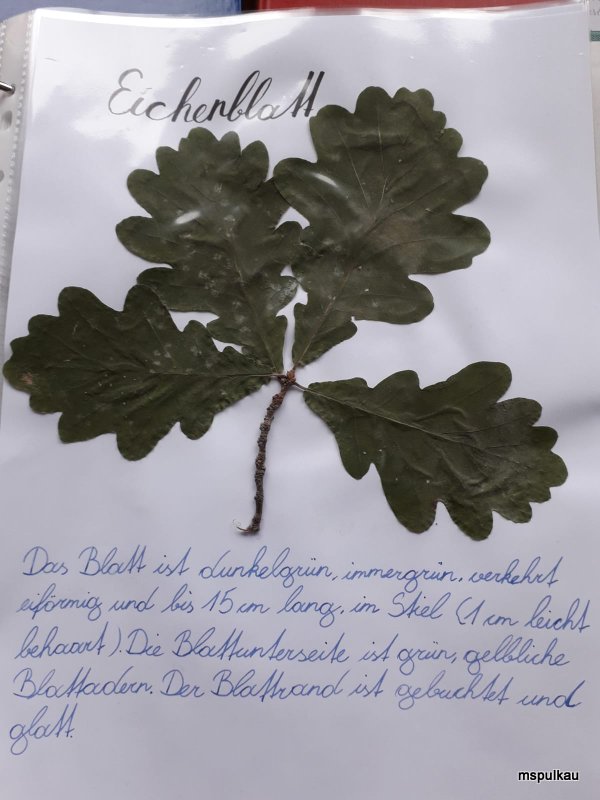 Eichenblatt
Das Blatt ist dunkelgrün, immergrün, verkehrt
eiförmig und bis 15 cm lang, im Stiel (1 cm leicht
behaart). Die Blattunterseite ist grün, gelbliche
Blattadern. Der Blattrand ist gebuchtet und
glatt.
mspulkau